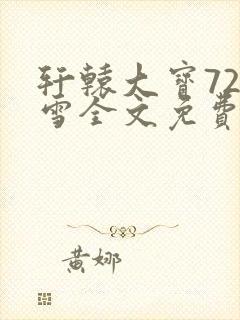 轩辕大宝72
雪全文免费
黄娜